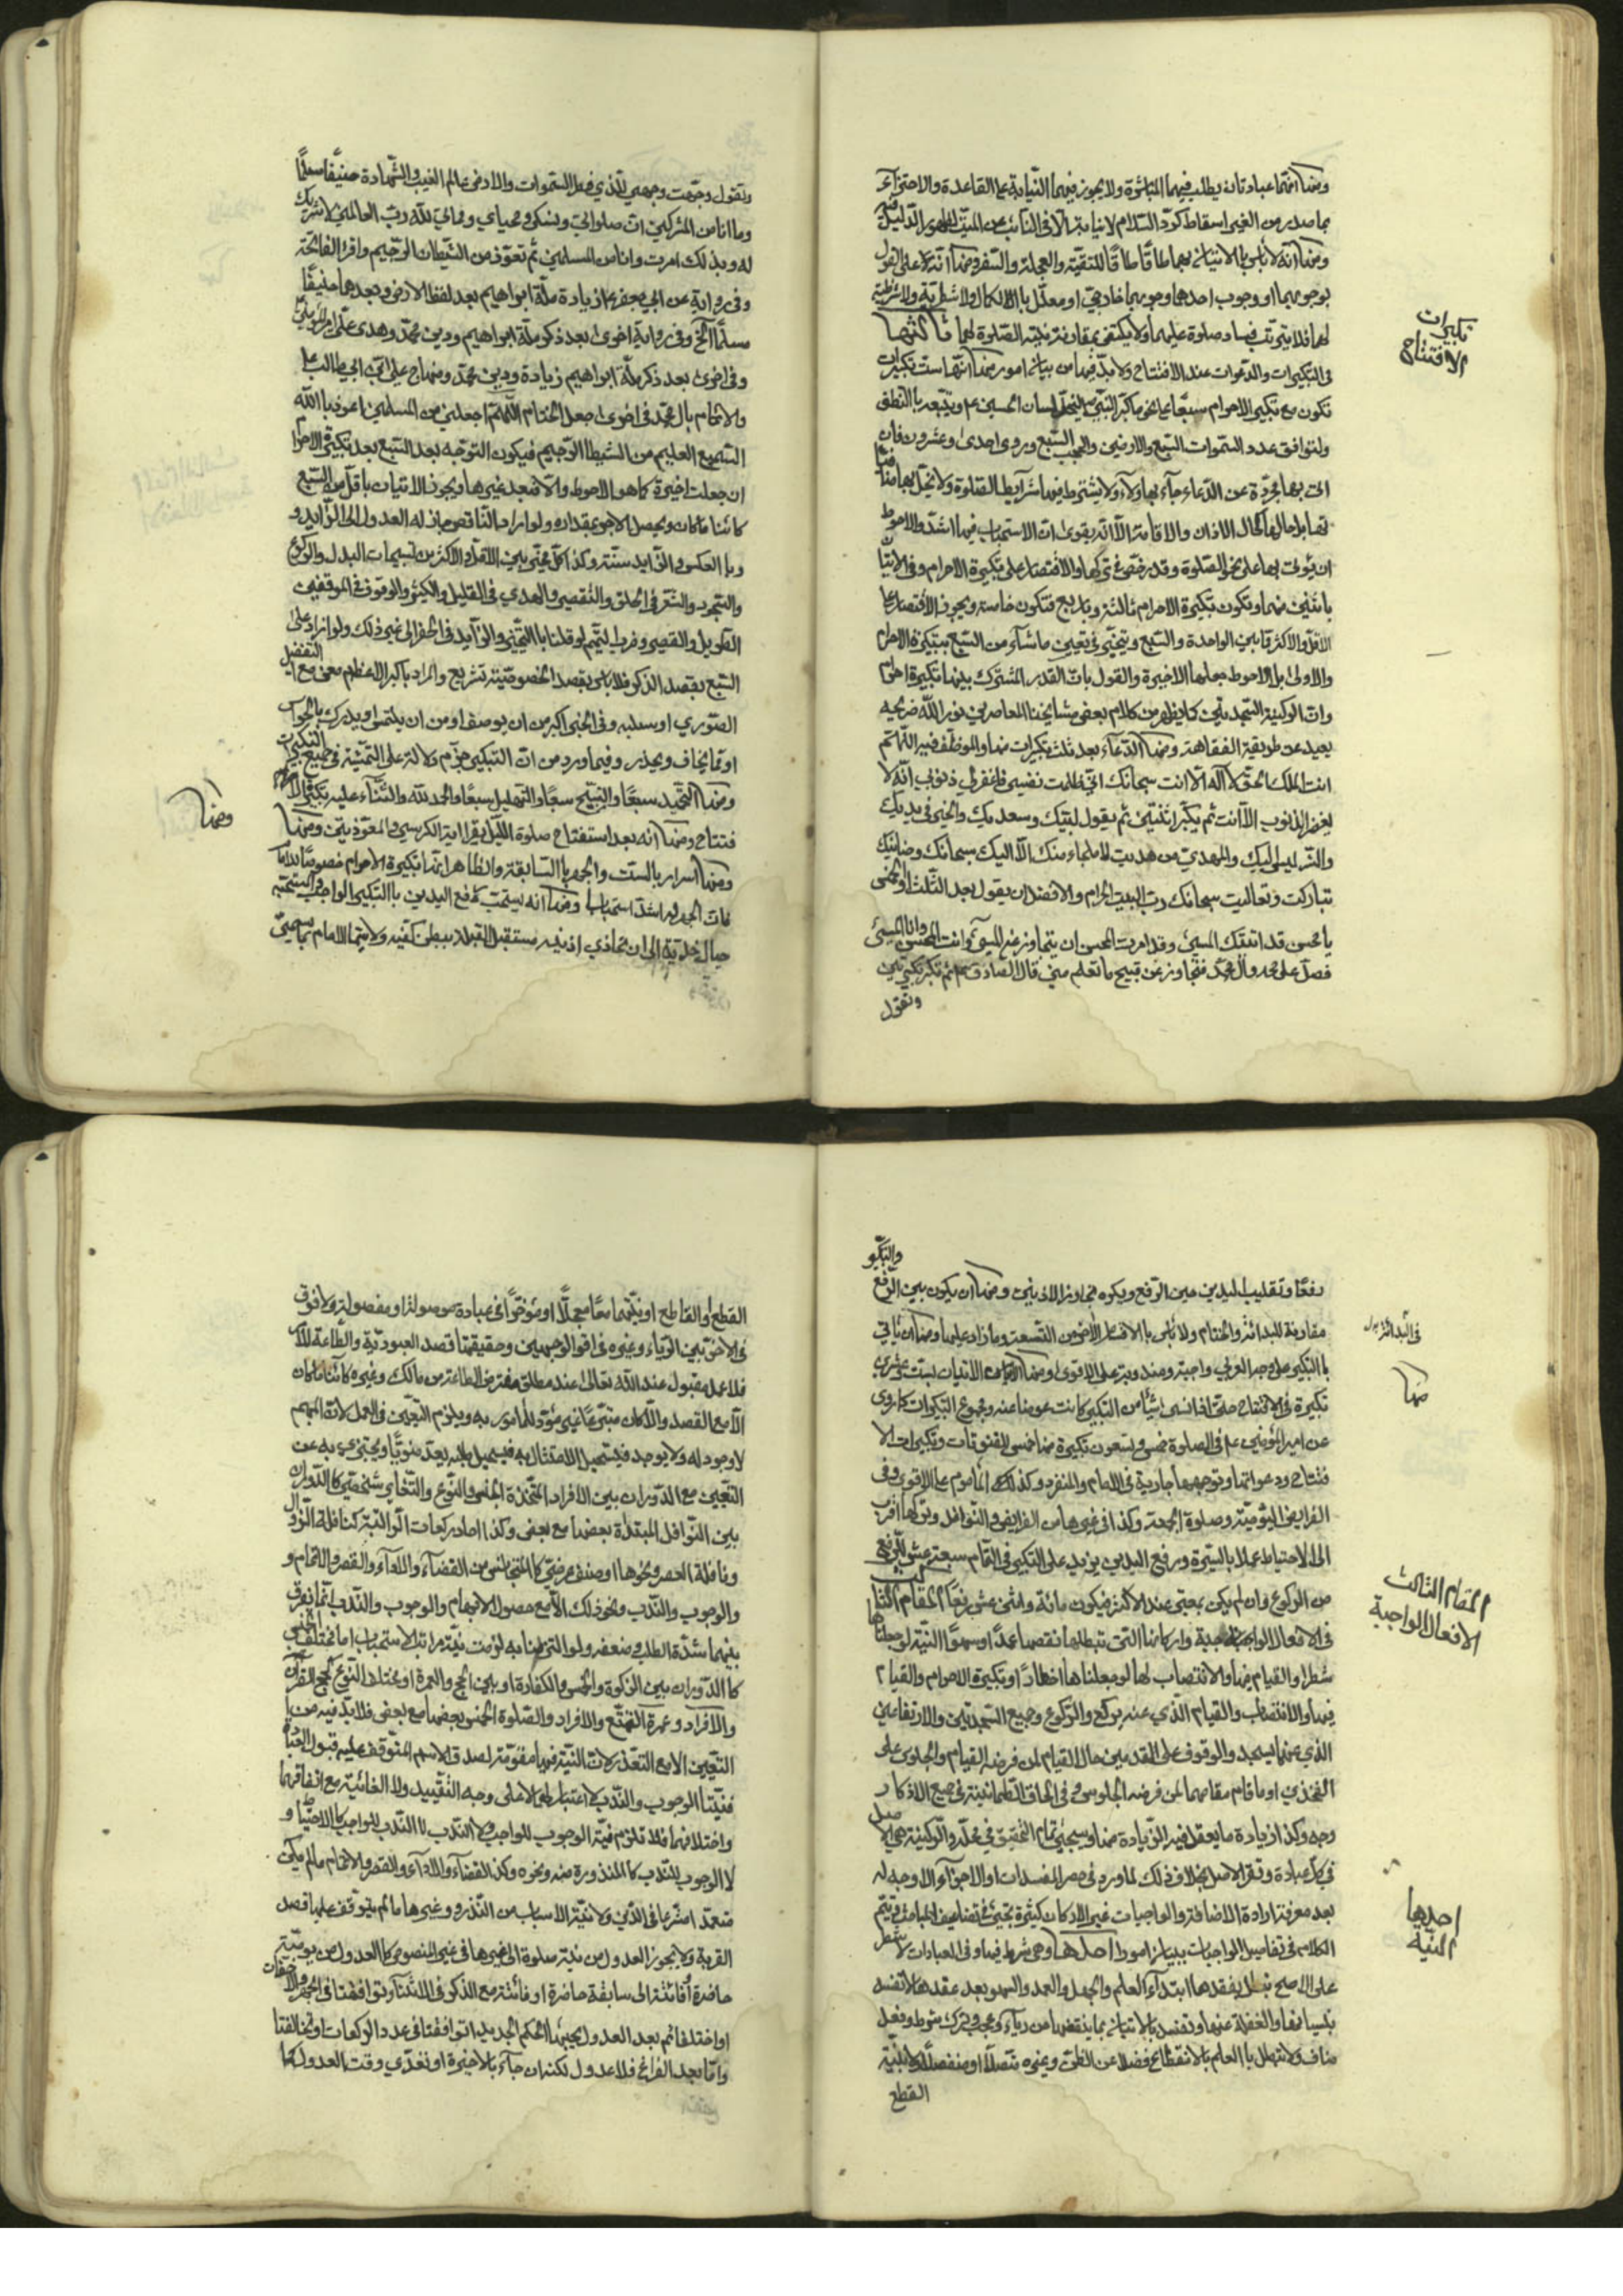 ومنها انهما عبادتان يطلب فيهما المباشرة ولا يجوز فيهما النيابة على القاعدة والاجتزاء
بما صدر من الغير اسقاط كرد السلام لا نيابة الا في النائب عن الميت لظهور الدليل فيه
ومنها انه لا بأس بالاتيان بهما طاقا طاقا للتقية والعجلة والسفر ومنها انه لا على القول
بوجوبهما او وجوب احدهما وجوبهما خارجي او معلل بالاكمال ولا شطرية ولا شرطية
لهما فلا يترتب فساد صلوة عليهما ولا يكتفى بمقارنة نية الصلوة لهما ثالثها
تكبيرات
الافتتاح
في التكبيرات والدعوات عند الافتتاح ولا بد فيها من بيان امور منها انها ست تكبيرات
تكون مع تكبير الاحرام سبعا على نحو ما كبر النبي لسان الحسين ع وتتبعه بالنطق
ولتوافق عدد السموات السبع والارضين والحجب السبع وروى احدى وعشرون فان
اتى بها مجردة عن الدعاء جاء بها ولاء ولا يشترط فيها شرايط الصلوة ولا تخل بها
بل حالها كحال الاذان والاقامة الا انه يقوى ان الاستحباب فيها اشد والاحوط
ان يؤتى بها على نحو الصلوة وقد رخص في تركها والاقتصار على تكبيرة الاحرام وفي الاتيان
باثنين منها وتكون تكبيرة الاحرام ثالثة وباربع فتكون خامسة ويجوز الاقتصار على
الاقل والاكثر ما بين الواحدة والسبع ويتخير في تعيين ما شاء من السبع بتكبيرة الاحرام
والاولى بل الاحوط جعلها الاخيرة والقول بان القدر المشترك بينها تكبيرة احرام
وان الركنية التجديد كما يظهر من كلام بعض مشايخنا المعاصرين نور الله ضريحه
بعيد عن طريقة الفقاهة ومنها الدعاء بعد ثلث تكبيرات منها والموظف فيه اللهم
انت الملك الحق لا اله الا انت سبحانك اني ظلمت نفسي فاغفر لي ذنوبي انه لا
يغفر الذنوب الا انت ثم يكبر اثنتين ثم يقول لبيك وسعديك والخير في يديك
والشر ليس اليك والمهدي من هديت لا ملجاء منك الا اليك سبحانك وحنانيك
تباركت وتعاليت سبحانك رب البيت الحرام والافضل ان يقول بعد الثلث او الخمس
يا محسن قد اتيتك المسيء وقد امرت المحسن ان يتجاوز عن المسيء وانت المحسن وانا المسيء
فصل على محمد وال محمد وتجاوز عن قبيح ما تعلم مني قال الصادق ع ثم تكبر تكبيرتين
وتقول
وتقول وجهت وجهي للذي فطر السموات والارض عالم الغيب والشهادة حنيفا مسلما
وما انا من المشركين ان صلواتي ونسكي ومحياي ومماتي لله رب العالمين لا شريك
له وبذلك امرت وانا من المسلمين ثم تعوذ من الشيطان الرجيم واقرء الفاتحة
وفي رواية عن ابي جعفر ع زيادة ملة ابراهيم بعد لفظ الارض وبعدهما حنيفا
مسلما الخ وفي رواية اخرى بعد ذكر ملة ابراهيم ودين محمد وهدى علي امير المؤمنين
وفي اخرى بعد ذكر ملة ابراهيم زيادة ودين محمد ومنهاج علي بن ابي طالب ع
والائتمام بال محمد في اخرى جعل الختام اللهم اجعلني من المسلمين اعوذ بالله
السميع العليم من الشيطان الرجيم فيكون التوجه بعد السبع بعد تكبيرة الاحرام
ان جعلت اخيرة كما هو الاحوط والا فبعد غيرها ويجوز الاتيان باقل من السبع
كائنا ما كان ويحصل الاجر بمقداره ولو اراد الناقص جاز له العدول الى الزايد و
وبالعكس والزايد سنة وكذا كل مخير بين الاقل والاكثر من تسبيحات البدل والركوع
والسجود والتعزير الحلق والتقصير والهدي في القليل والكثير والوقوف في الموقفين
الطويل والقصير وفرط ليتم لو قلنا بالتخيير والزايد في الحفر الى غير ذلك ولو زاد على
السبع بقصد الذكر فلا باس بقصد الخصوصية تشريع والمراد باكبر الاعظم معنى مع التفضيل
الصوري او سلبه وفي الخبر اكبر من ان يوصف او من ان يلتمس او يدرك بالحواس
او مما يخاف ويحذر وفيما ورد من ان التكبير جزم دلالة على التمشية في جميع التكبيرات
ومنها التحميد سبعا والتسبيح سبعا والتهليل سبعا والحمد لله والثناء عليه بتكبيرة الاحرام
فتتاح ومنها انه بعد استفتاح صلوة الليل يقرا اية الكرسي والمعوذتين ومنها
ومنها
ومنها اسرار بالست والجهر بالسابعة والظاهر انها تكبيرة الاحرام خصوصا للامام
فان الجهر له اشد استحبابا ومنها انه يستحب رفع اليدين بالتكبير الواجب والمستحبة
حيال خديه الى ان تحاذي اذنيه مستقبل القبلة ببطن كفيه ولا سيما الامام
والتكبير
رفعا وتقليب اليدين حين الرفع ويكره تجاوز الاذنين ومنها ان يكون بين الرفع
مقارنة للبدائة والختام ولا باس بالاقتصار الاخر من التسعة وما زاد عليها ومنها ان ياتي
في البدائة
بالتكبير على وجه العربي واجبه ومندوبه على الاقوى ومنها الاتيان بست وعشرين
منها
تكبيرة في الافتتاح حتى اذا نسي شيئا من التكبير كانت عوضا عنه ومجموع التكبيرات كما روى
عن امير المؤمنين ع في الصلوة خمس وتسعون تكبيرة منها خمس للقنوتات وتكبيرات الا
فتتاح ودعواتها وتوجهها جارية في الامام والمنفرد وكذلك الماموم على الاقوى وفي
الفرايض اليومية وصلوة الجمعة وكذا في غيرها من الفرايض والنوافل وتركها اقرب
الى الاحتياط عملا بالسيرة ورفع اليدين يزيد على التكبير في التمام سبعة عشر للرفع
من الركوع وان لم يكن بمعتبر عند الاكثر فيكون مائة واثني عشر رفعا المقام الثالث
المقام الثالث
الافعال الواجبة
في الافعال الواجبة واركانها التي تبطلها نقصها عمدا او سهوا النية لو جعلناها
شطرا والقيام فيها والانتصاب لها لو جعلناها اخطارا وتكبيرة الاحرام والقيام
فيها والانتصاب والقيام الذي عنه يركع والركوع وجميع السجدتين والارتفاع
الذي عنهما يسجد والوقوف على القدمين حال القيام لمن فرضه القيام والجلوس على
الفخذين او ما قام مقامهما لمن فرضه الجلوس وفي الحاق الطمانينة في جميع الاذكار
وجه وكذا زيادة ما يعقل فيه الزيادة منها وسيجيء تمام التحقيق في محله والركنية هي الاصل
في كل عبادة ونقر الاصل بخلاف ذلك لما ورد في حصر المفسدات او الاجزاء الا وجه له
بعد معرفة ارادة الاضافة والواجبات غير الاركان كثيرة تجيء في تضاعيف المباحث فيتم
الكلام في تفاصيل الواجبات ببيان امور احدها وهي شرط فيها وفي العبادات لا شطر
احديها
النية
على الاصح تبطل بفقدها ابتداء العلم والجهل والعمد والسهو بعد عقدها لا تفسد
بنسيانها والغفلة عنها وتفسد بالاتيان بما ينقضها من رياء وعجب وترك شرط وفعل
مناف ولا تبطل بالعلم بالانقطاع فضلا عن الظن وغيره متصلا او منفصلا ولا بنية
القطع
القطع والقاطع او نيتهما معا معجلا او مؤخرا في عبادة موصولة او مفصولة ولا فرق
في الاخير بين الرياء وغيره في اقوى الوجهين وحقيقتها قصد العبودية والطاعة للامر
فلا عمل مقبول عند الله تعالى عند مطلق مفترض الطاعة من مالك وغيره كائنا ما كان
الا مع القصد والا كان متبرعا غير مؤد للمامور به ويلزم التعيين في العمل لان المبهم
لا وجود له ولا يوجد فيستحيل الامتثال به فيستحيل طلبه بعد منويا ويجتزى به عن
التعيين مع الدوران بين الافراد المتحدة الجنس والنوع والتغاير شخصي كالدوران
بين النوافل المبتداة بعضها مع بعض وكذا احاد ركعات الراتبة كنافلة الزوال
ونافلة العصر ونحوها او صنفي عرضي كالمتجانس من القضاء والاداء والقصر والاتمام و
والوجوب والندب ونحو ذلك الا مع حصول الابهام والوجوب والندب انما يفرق
بينهما شدة الطلب وضعفه ولو التزمنا به لزمت نية مراتب الاستحباب اما مختلف الجنس
كالدوران بين الزكوة والخمس والكفارة او بين الحج والعمرة او مختلف النوع كحج القران
والافراد وعمرة التمتع والافراد والصلوة الخمس بعضها مع بعض فلا بد فيه من
التعيين الا مع التعذر لان النية فيها مقومة لصدق الاسم المتوقف عليه قبول العبادة
فنيتا الوجوب والندب لا اعتبار لهما لا على وجه التقييد ولا الغائية مع اتفاقهما
واختلافهما فلا تلزم نية الوجوب للواجب ولا الندب لا الندب للواجب كالاحتياط و
لا الوجوب للندب كالمنذورة منه ونحوه وكذا القضاء والاداء والقصر والاتمام ما لم يكن
متعمدا مشرعا في الدين ولا نية الاسباب من النذر وغيرها مما لم يتوقف عليها قصد
القربة ولا يجوز العدول من نية صلوة الى غيرها في غير المنصوص كالعدول من يومية
حاضرة او فائتة الى سابقة حاضرة او فائتة مع الذكر في الاثناء وتوافقتا في الجهر والاخفات
او اختلفا ثم بعد العدول يجيء الحكم الجديد اتوافقتا في عدد الركعات او تخالفتا
واما بعد الفراغ فلا عدول لكنه ان جاء بالاخيرة او تعدى وقت العدول كما